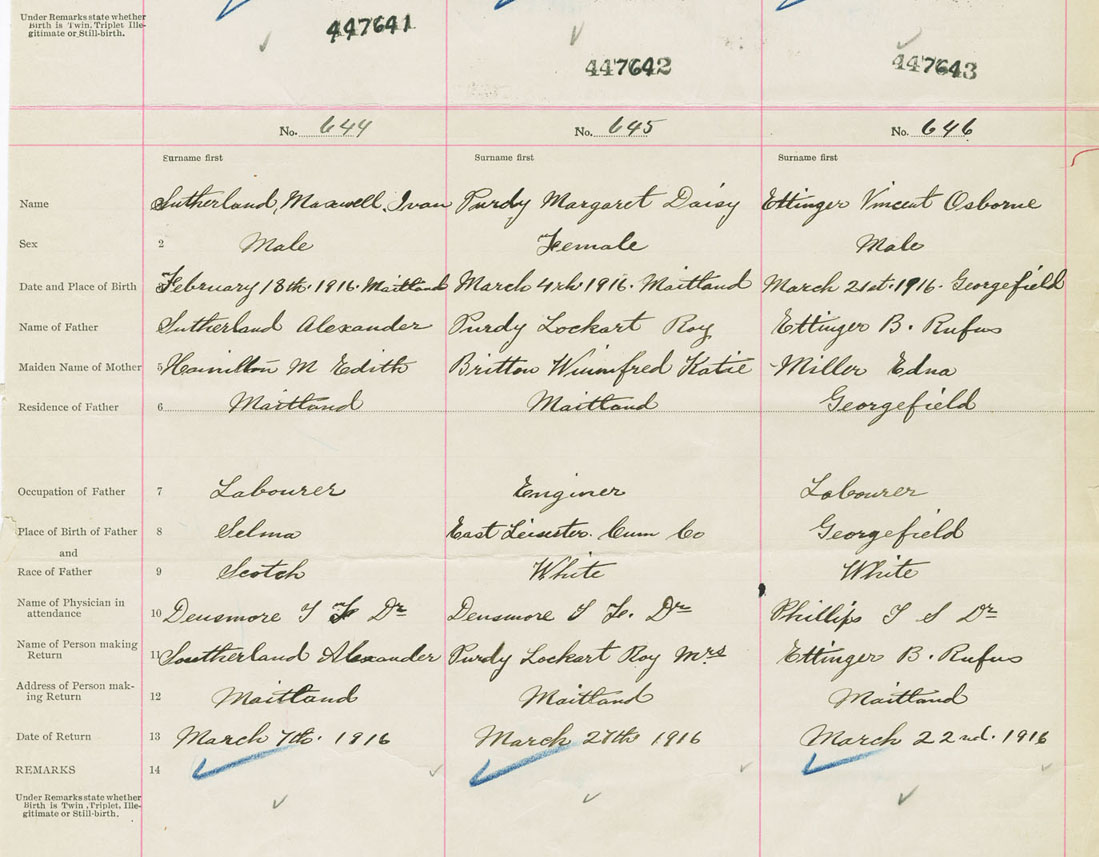 Under Remarks state whether
Birth is Twin, Triplet, Ille-
gitimate or Still-birth.
447641
447642
447643
No. 644 No. 645 No. 646
Surname first Surname first Surname first
Name Sutherland, Maxwell, Ivan Purdy Margaret Daisy Ettinger Vincent Osborne
Sex 2 Male Female Male
Date and Place of Birth February 18th. 1916. Maitland March 4rh 1916. Maitland March 21st. 1916. Georgefield
Name of Father Sutherland Alexander Purdy Lockart Roy Ettinger B. Rufus
Maiden Name of Mother 5 Hamilton M Edith Britton Winnifred Katie Miller Edna
Residence of Father 6 Maitland Maitland Georgefield
Occupation of Father 7 Labourer Enginer Labourer
Place of Birth of Father 8 Selma East Leisester. Cum Co Georgefield
and
Race of Father 9 Scotch White White
Name of Physician in
attendance 10 Densmore T F Dr Densmore T F. Dr Phillips T S Dr
Name of Person making
Return 11 Southerland Alexander Purdy Lockart Roy Mrs Ettinger B. Rufus
Address of Person mak-
ing Return 12 Maitland Maitland Maitland
Date of Return 13 March 7th. 1916 March 27th 1916 March 22nd. 1916
REMARKS 14
Under Remarks state whether
Birth is Twin, Triplet, Ille-
gitimate or Still-birth.